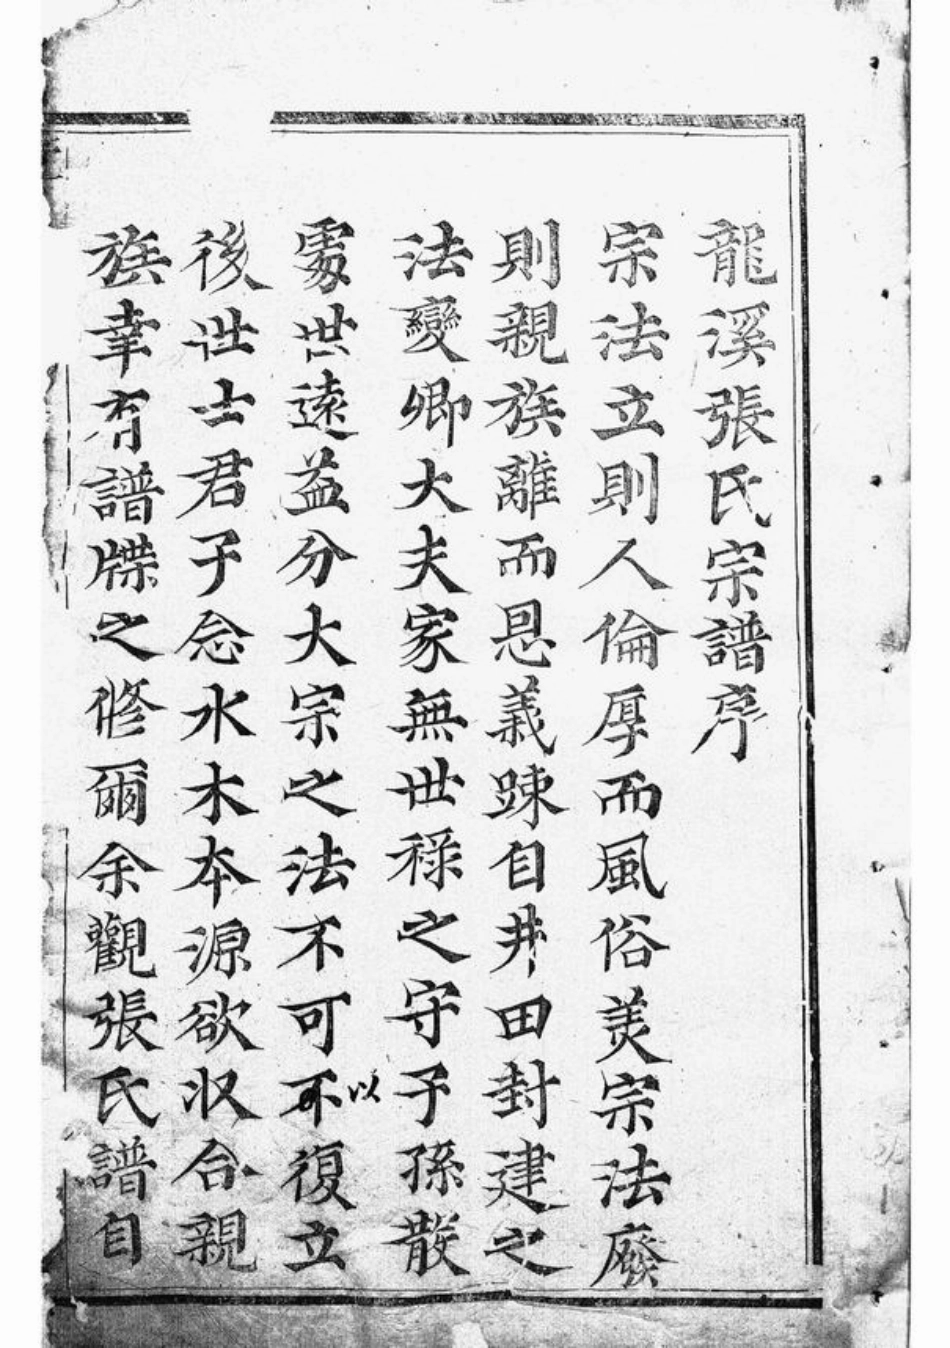 龍溪張氏宗譜序
宗法立則人倫厚而風俗美宗法廢
則親族離而恩義踈自井田封建之
法變卿大夫家無世祿之守子孫散
處世遠益分大宗之法不可不以復立
後世士君子念水木本源欲收合親
族幸有譜牒之修爾余觀張氏譜自